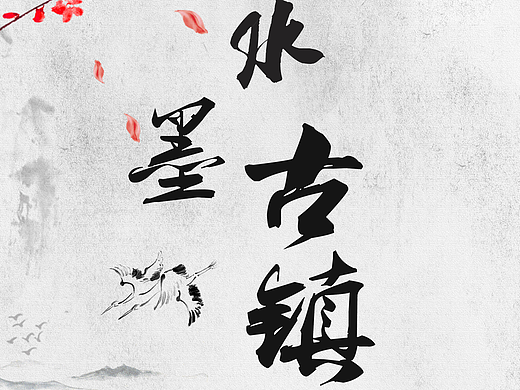 水
墨
古
镇